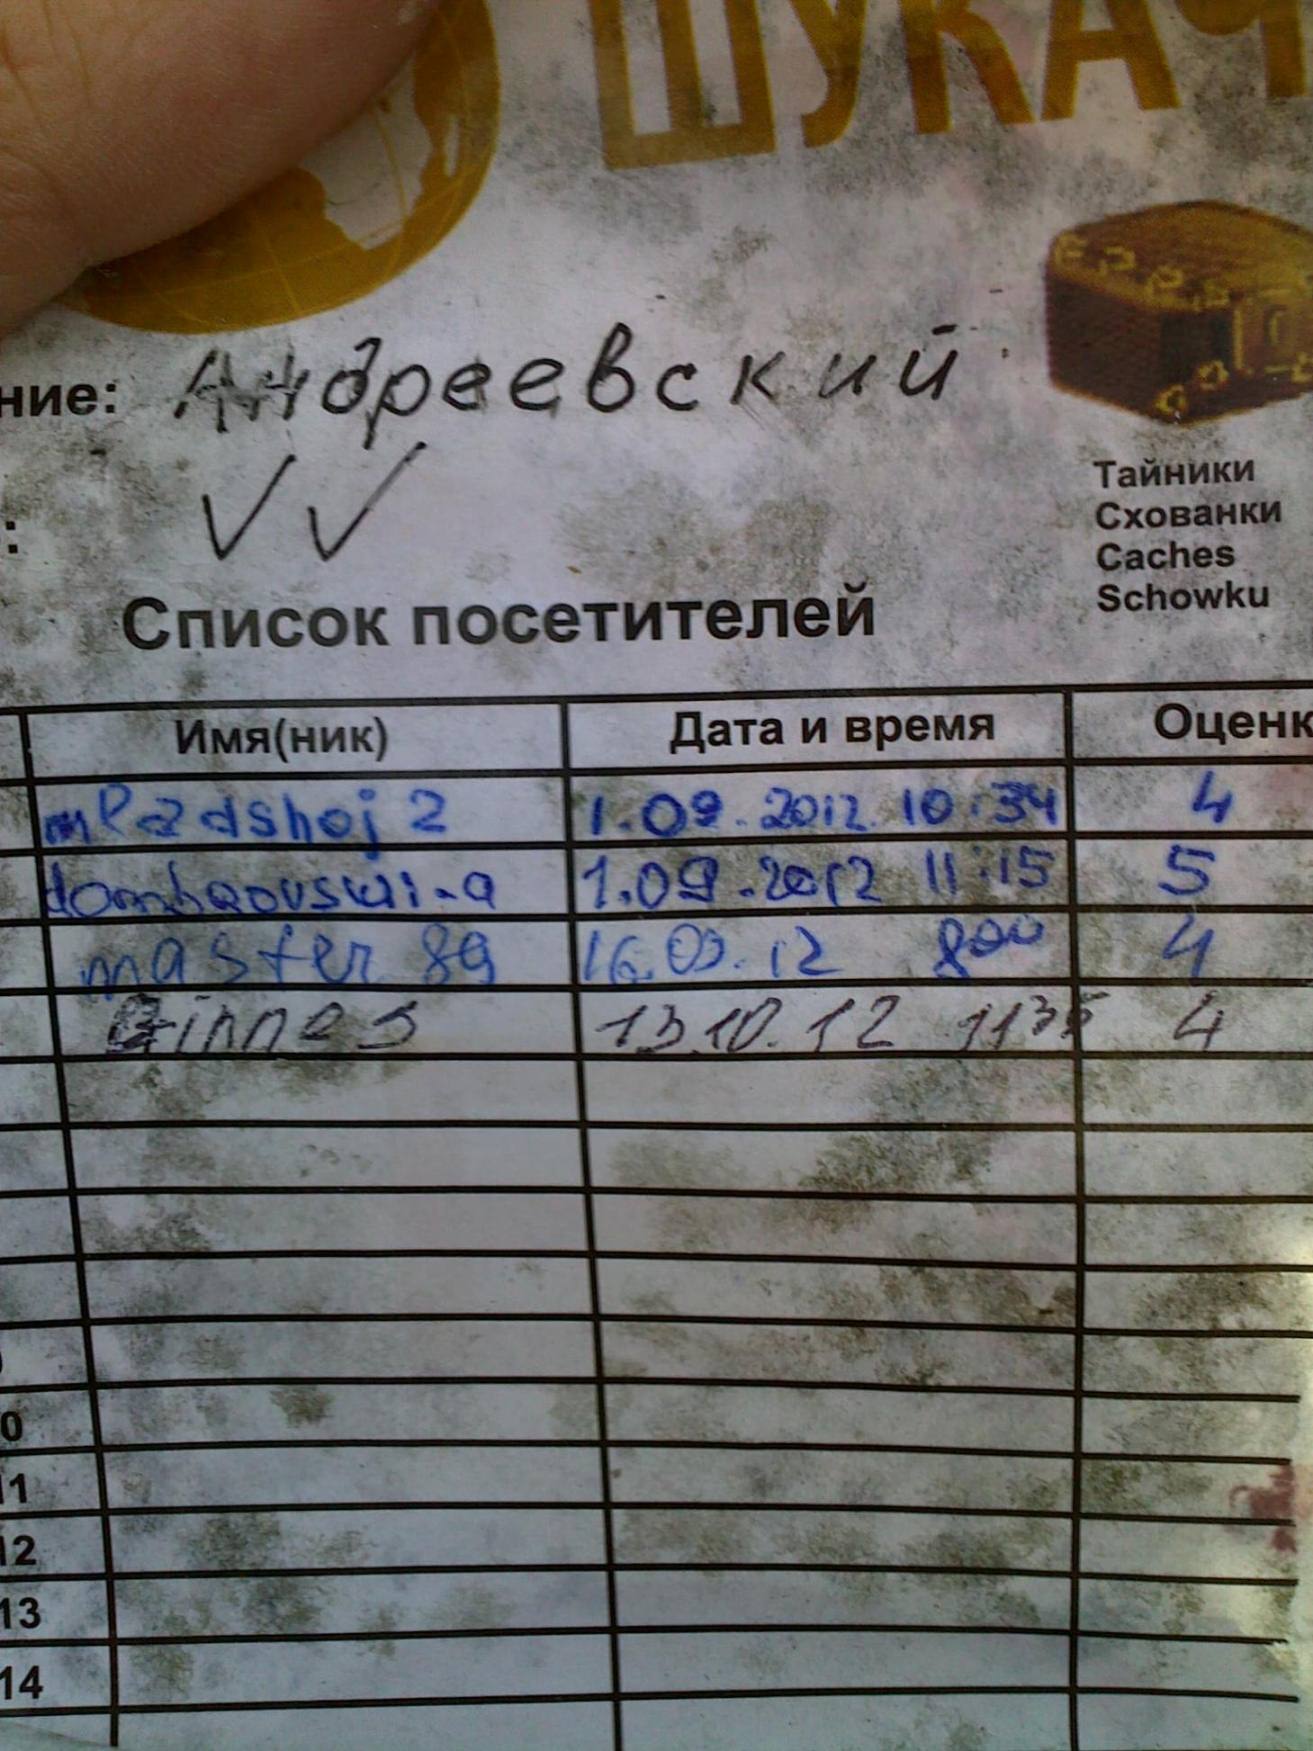 ШУКАЧ
ние: Андреевский
: √√
Тайники
Схованки
Caches
Schowku
Список посетителей
Имя(ник) Дата и время Оценк
mladshoj2 1.09.2012. 10:34 4
dombrovski-a 1.09.2012 11:15 5
master 89 16.09.12 8 00 4
Ginnes 13.10.12 11 35 4
0
11
12
13
14